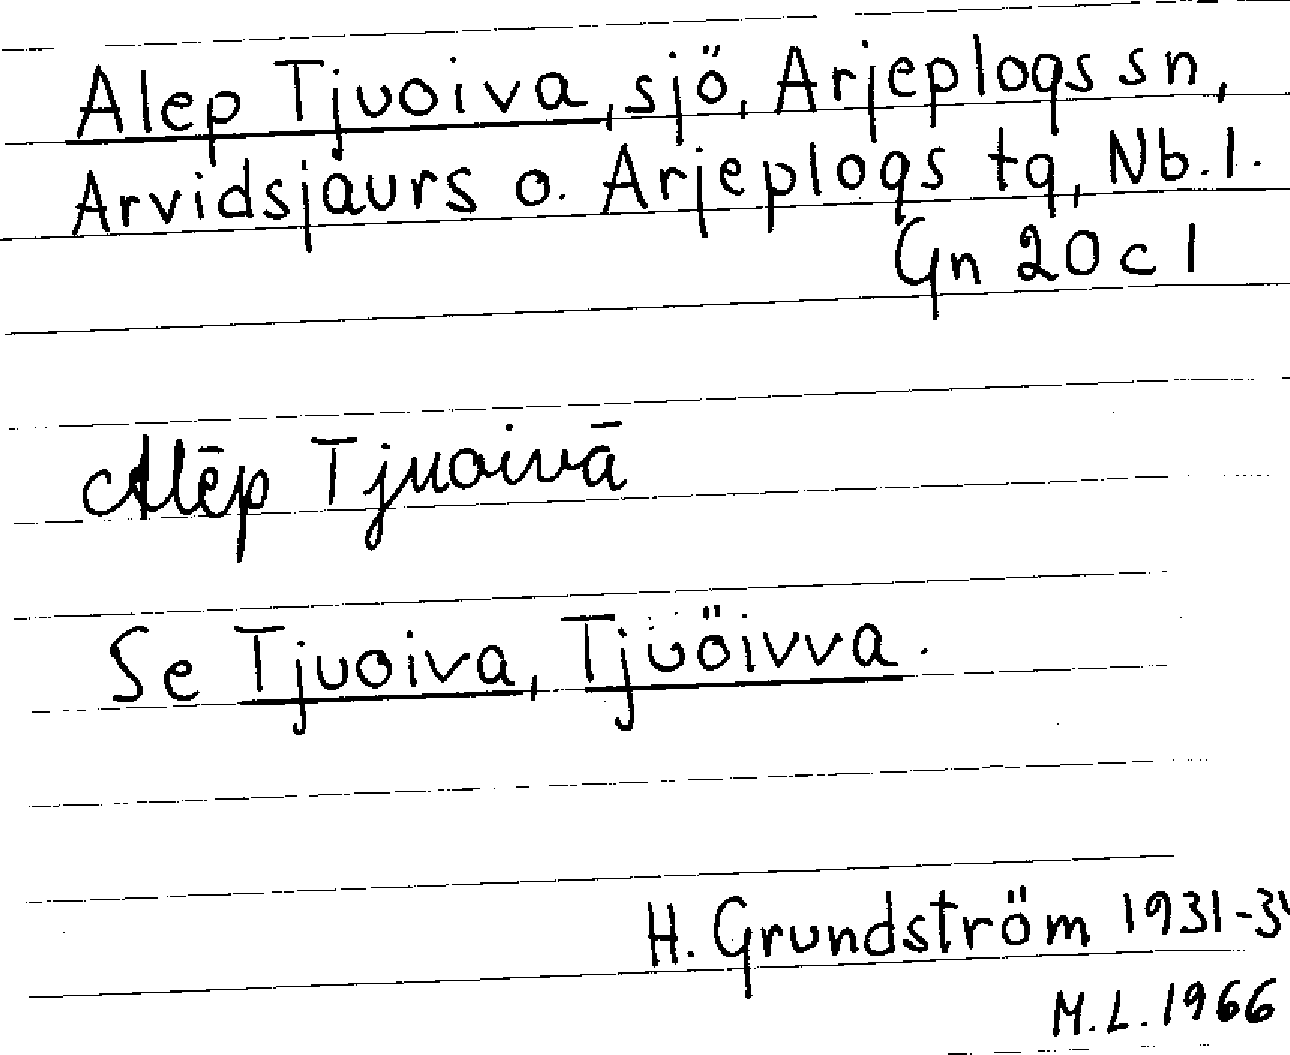 Alep Tjuoiva, sjö, Arjeplogs sn,
Arvidsjaurs o. Arjeplogs tg, Nb. l.
Gn 20 c 1
Alēp Tjuoivā
Se Tjuoiva, Tjuöivva.
H. Grundström 1931-34
M.L. 1966